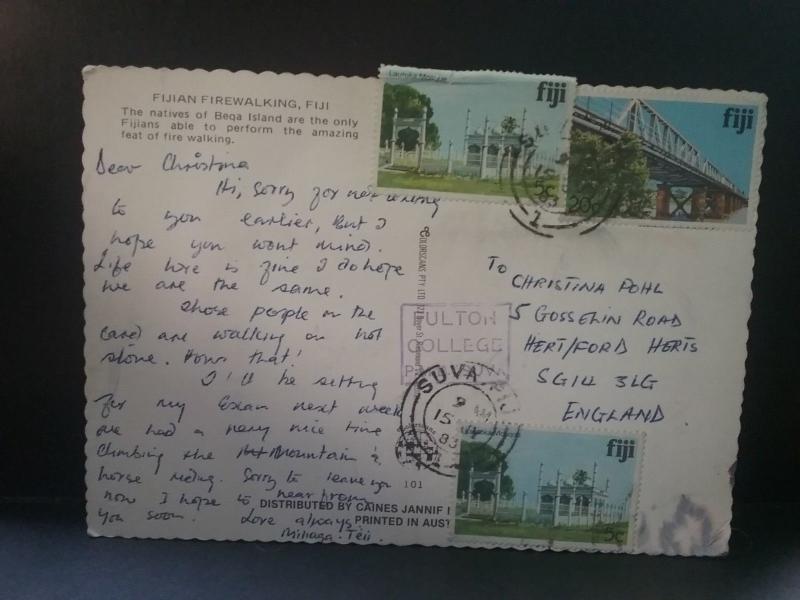 FIJIAN FIREWALKING, FIJI
The natives of Beqa Island are the only
Fijians able to perform the amazing
feat of fire walking.
Dear Christina
Hi, Sorry for not writing
to you earlier, But I
hope you wont mind.
Life here is fine I do hope
we are the same.
Those people on the
card are walking on hot
stone. Hows that!
I'll be sitting
for my Exam next week
we had a very nice time
Climbing the Mountain &
horse riding. Sorry to leave you
now I hope to hear from
you soon. Love always
DISTRIBUTED BY CAINES JANNIF
PRINTED IN AUST
101
COLORSCANS PTY LTD
Lautoka Mosque
fiji
5c
fiji
20c
1
ULTON
COLLEGE
SUVA, FIJI
9 AM
15
83
To
CHRISTINA POHL
5 GOSSELIN ROAD
HERT/FORD HERTS
SG14 3LG
ENGLAND
fiji
5c